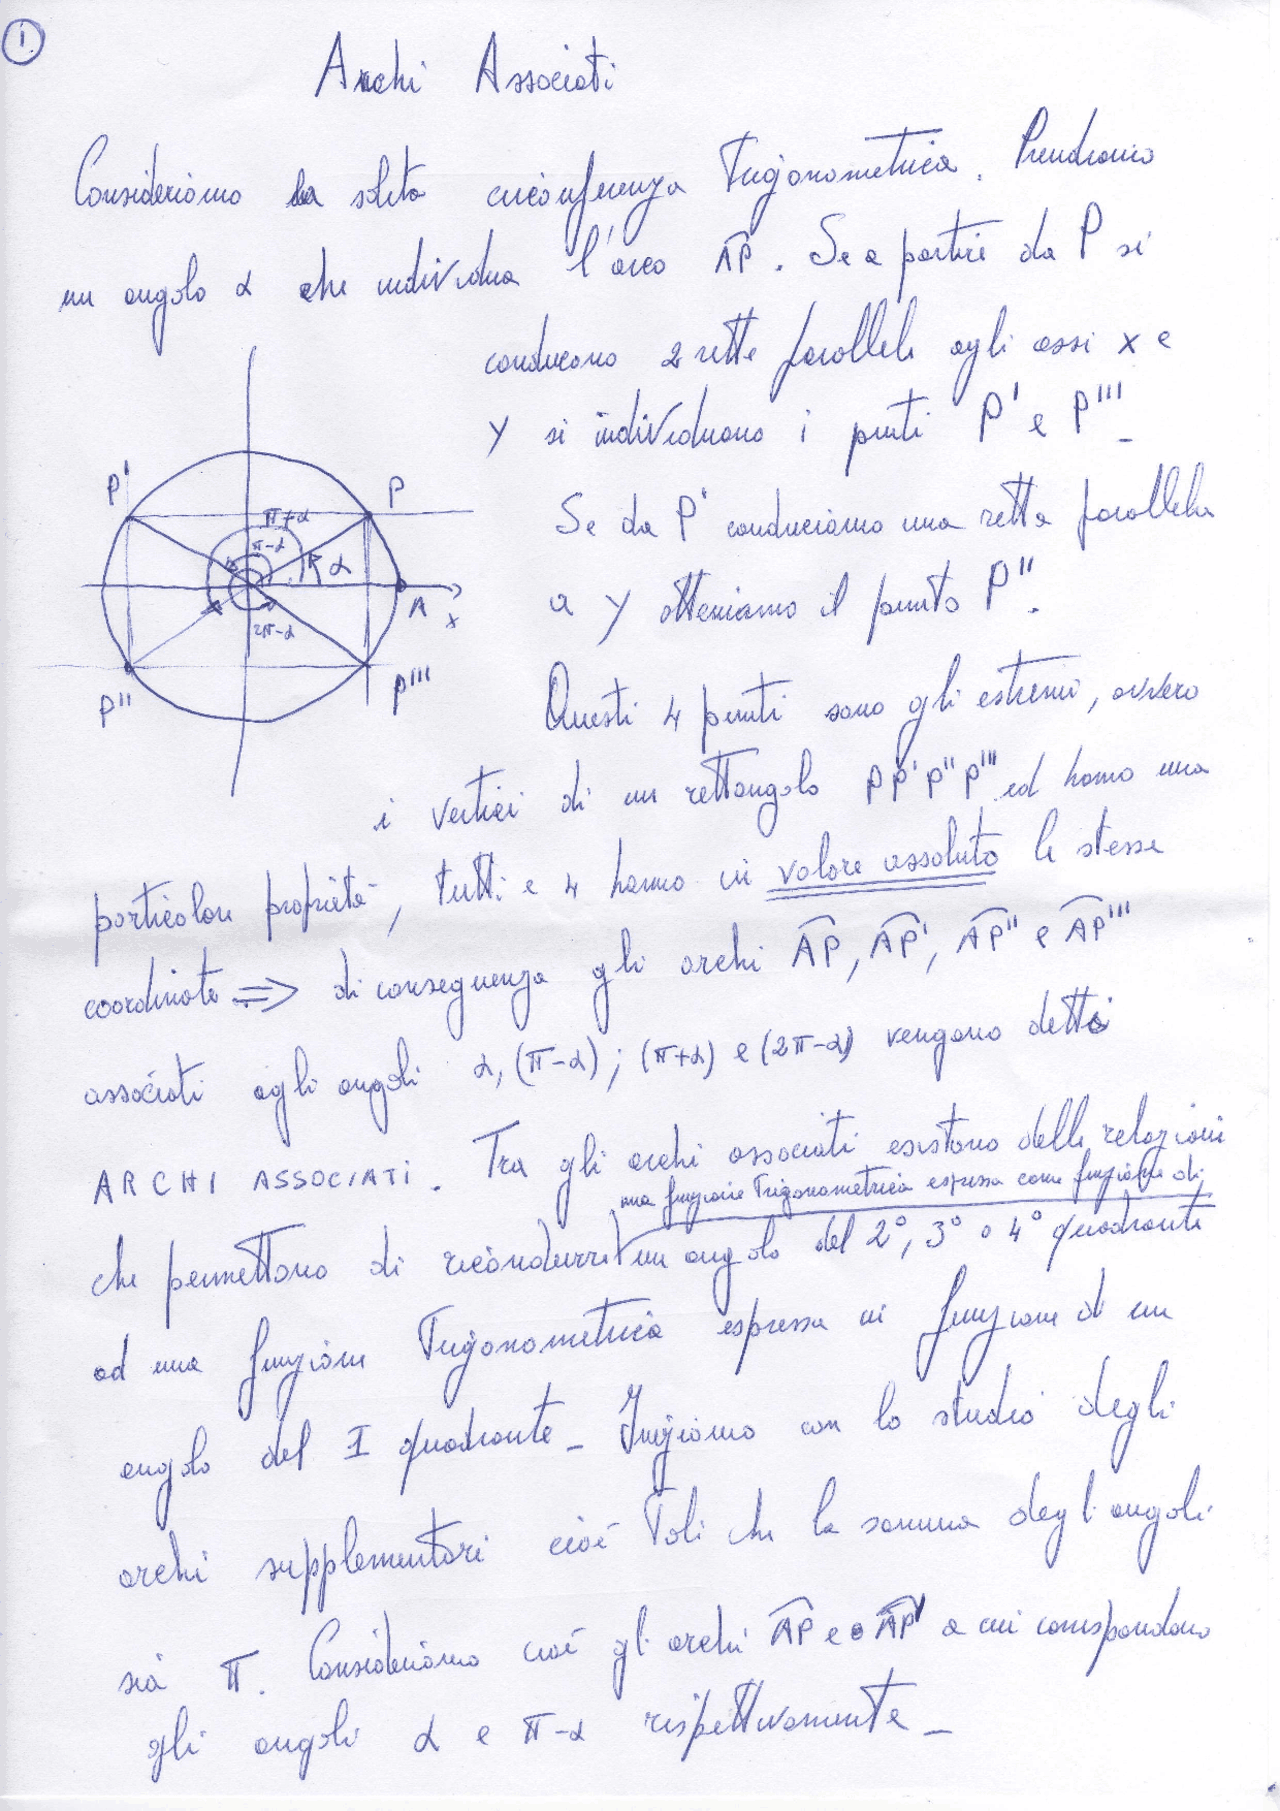 1
Archi Associati
Consideriamo la solita circonferenza Trigonometrica. Prendiamo
un angolo α che individua l'arco AP. Se a partire da P si
conducono 2 rette parallele agli assi x e
y si individuano i punti P' e P'''_
Se da P' conduciamo una retta parallela
a y otteniamo il punto P''.
P'
P
π+α
π-α
α
A
x
2π-α
P''
P'''
Questi 4 punti sono gli estremi, ovvero
i vertici di un rettangolo PP'P''P''' ed hanno una
particolare proprietà, tutti e 4 hanno in valore assoluto le stesse
coordinate => di conseguenza gli archi AP, AP', AP'' e AP'''
associati agli angoli α, (π-α); (π+α) e (2π-α) vengono detti
ARCHI ASSOCIATI. Tra gli archi associati esistono delle relazioni
una funzione Trigonometrica espressa come funzione di
che permettono di ricondurre un angolo del 2°, 3° o 4° quadrante
ad una funzione Trigonometrica espressa in funzione di un
angolo del I quadrante_ Iniziamo con lo studio degli
archi supplementari cioè Tali che la somma degli angoli
sia π. Consideriamo cioè gli archi AP e AP' a cui corrispondono
gli angoli α e π-α rispettivamente_